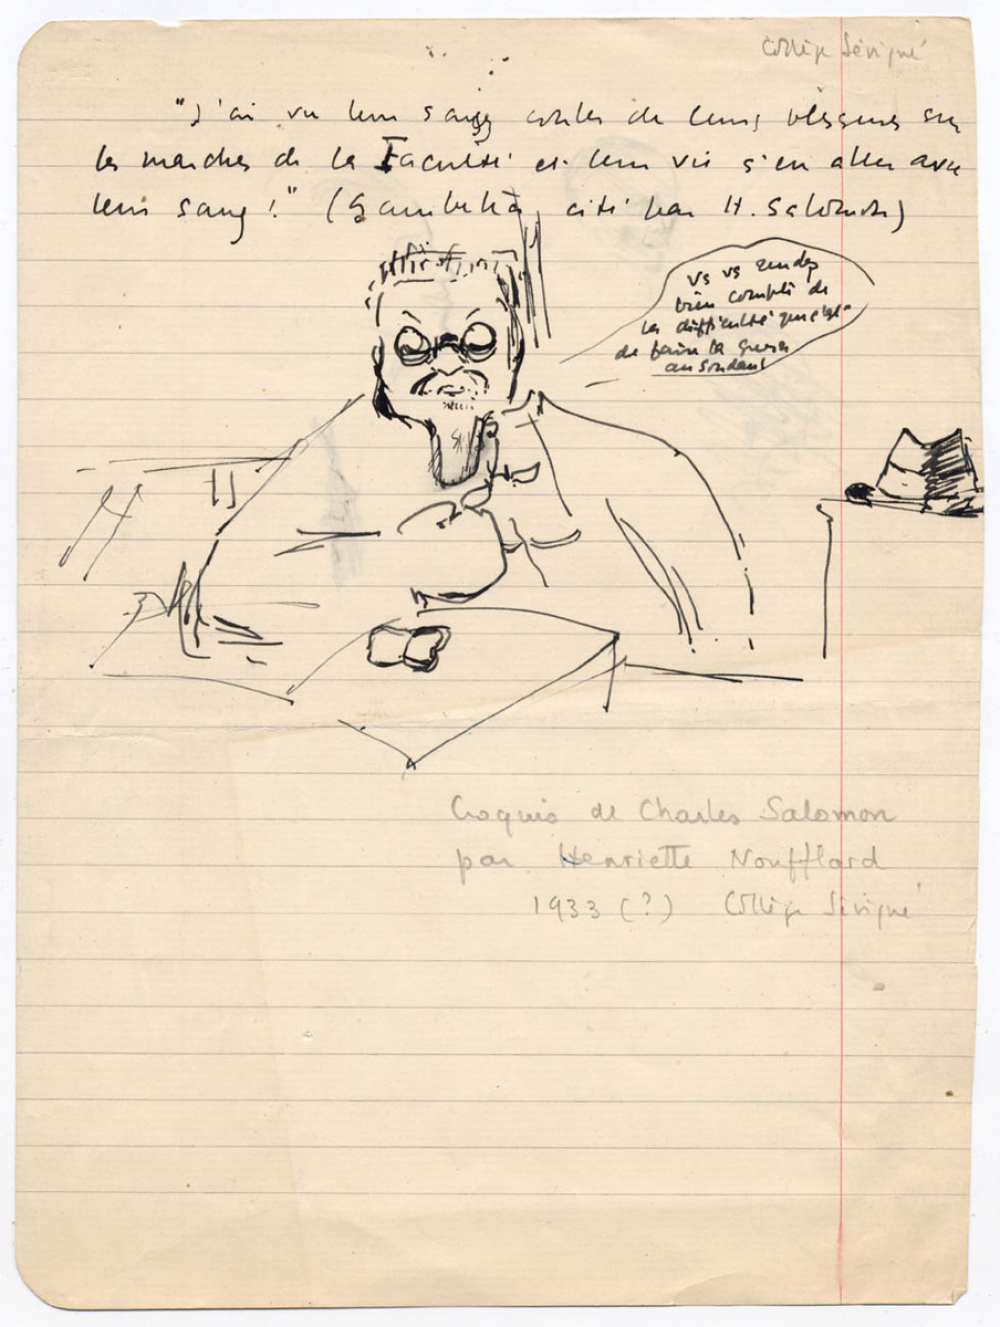 Collège Sévigné
"J'ai vu leur sang couler de leurs blessures sur
les marches de la Faculté et leur vie s'en aller avec
leur sang!" (Gambetta, cité par H. Salomon)
vs vs rendez
bien compte de
la difficulté que c'est
de faire la guerre
au Soudan!
Croquis de Charles Salomon
par Henriette Noufflard
1933 (?) Collège Sévigné